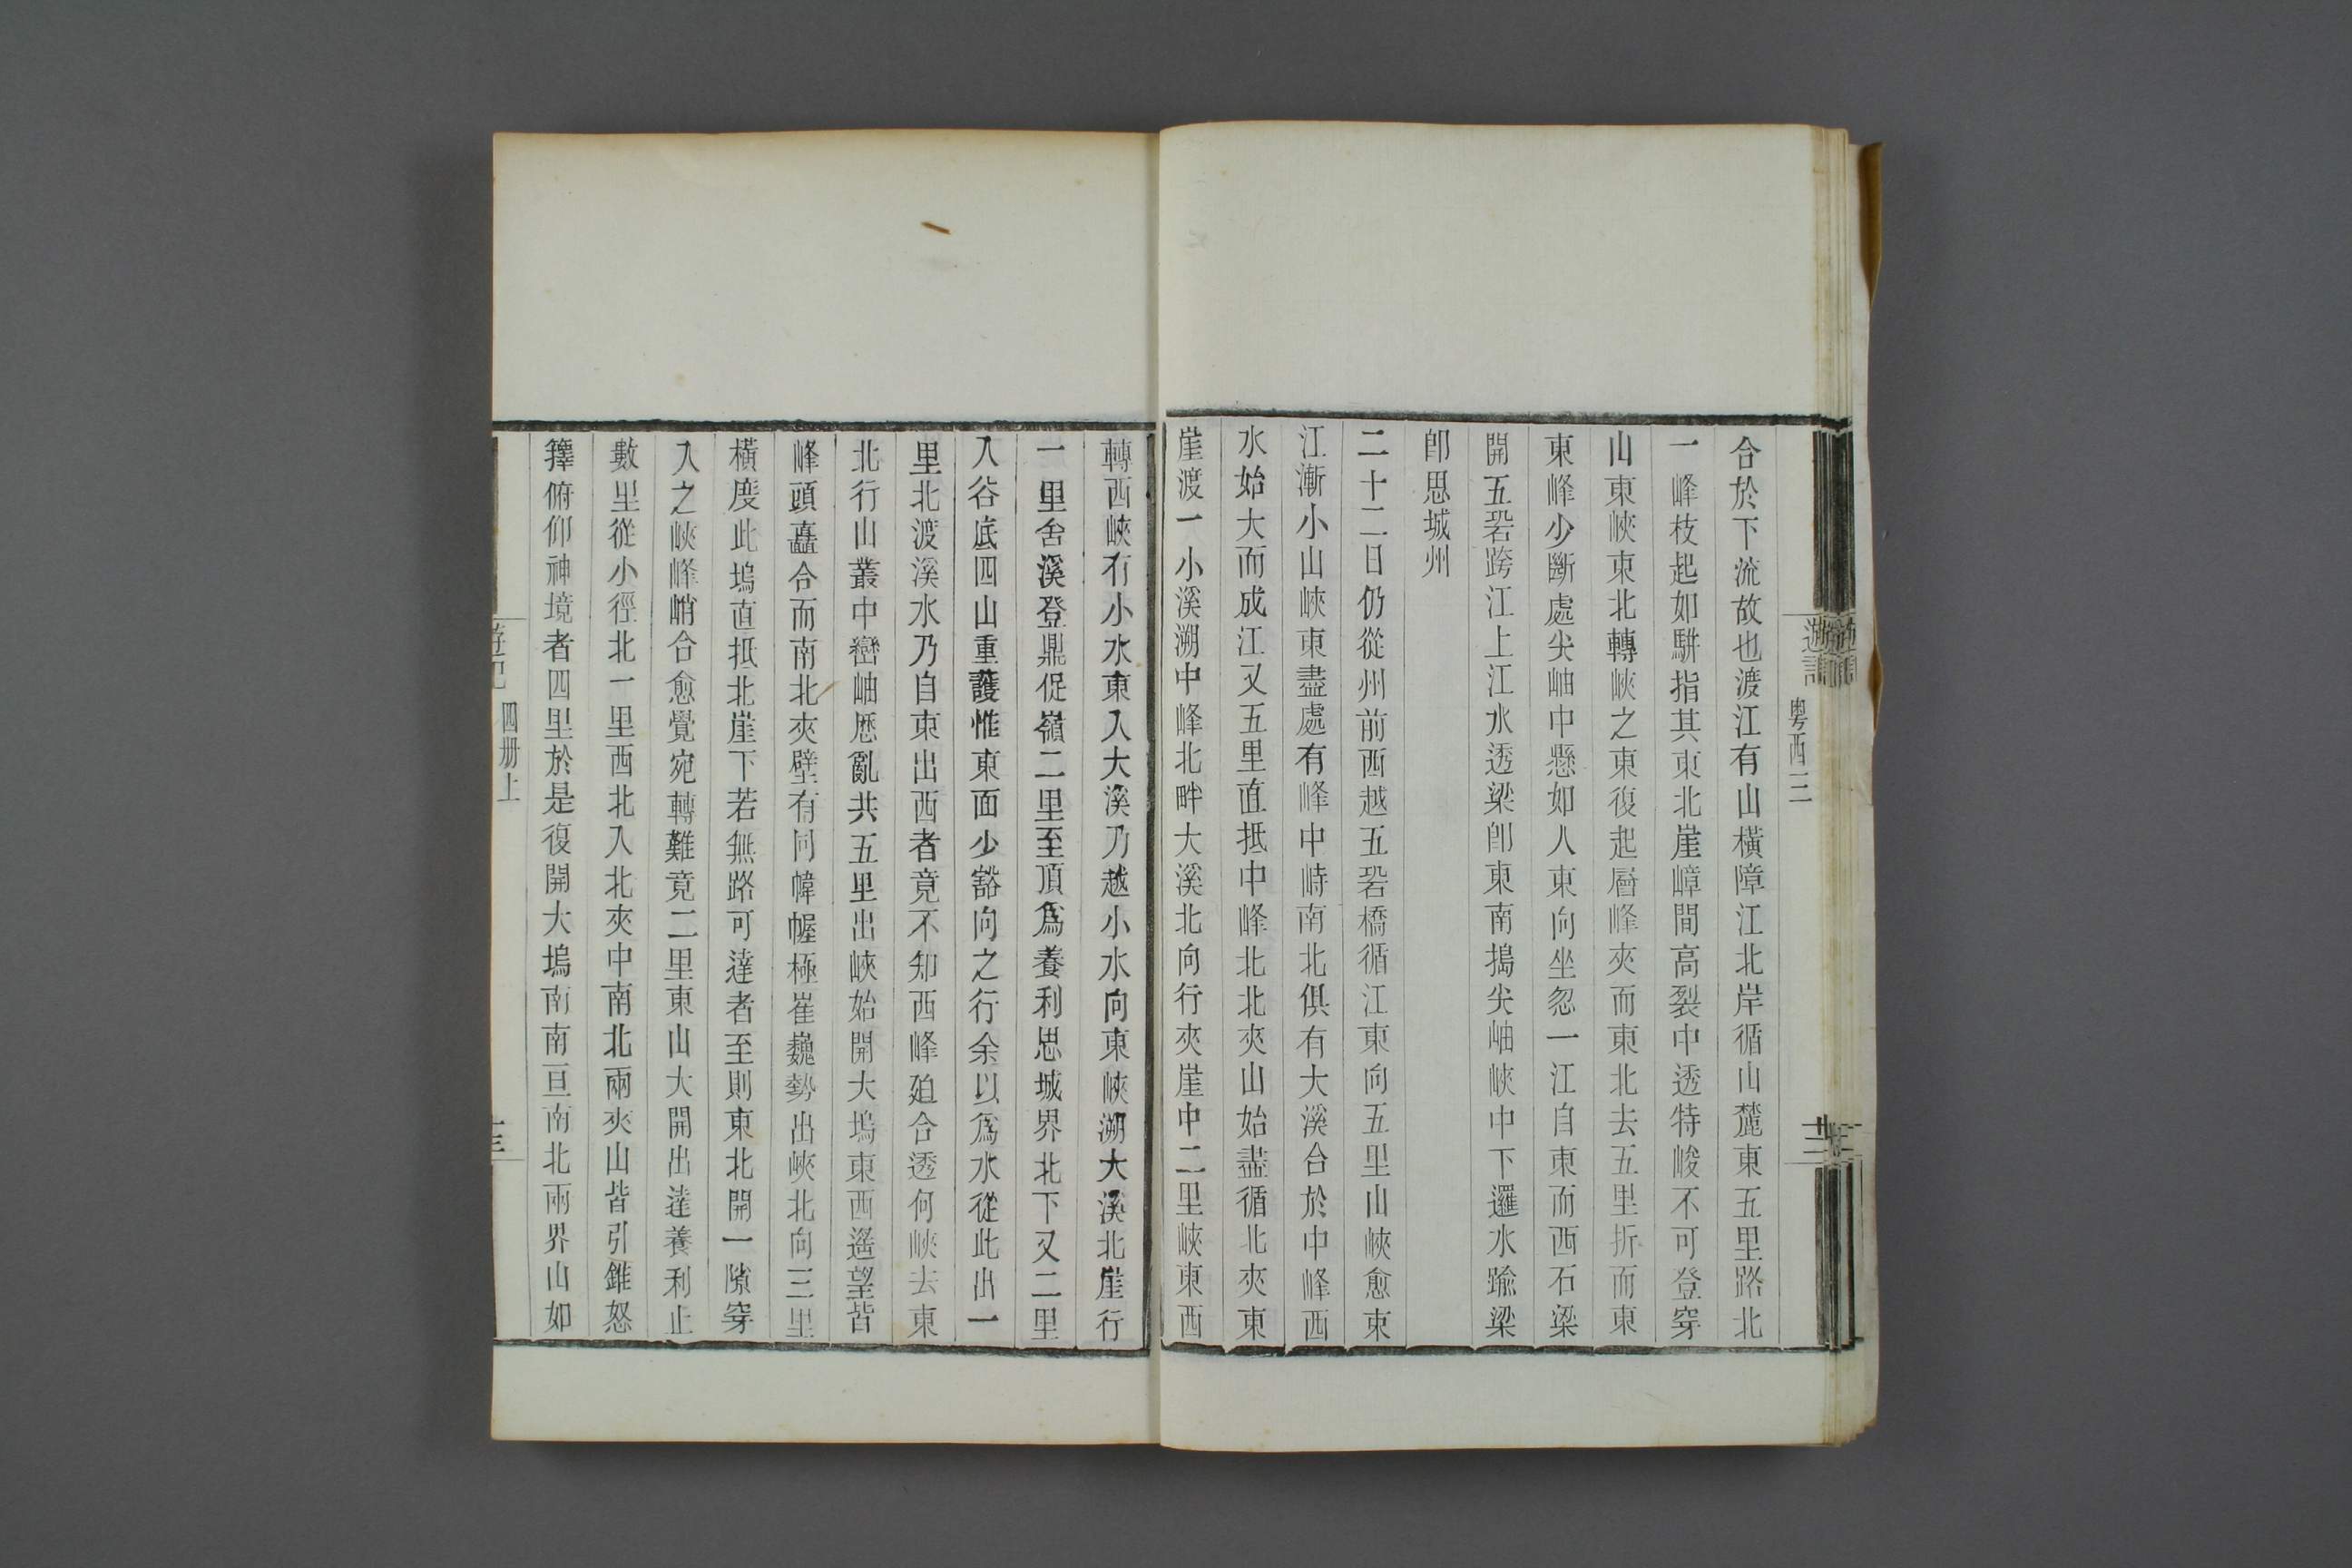 遊記
粤西三
合於下流故也渡江有山橫障江北岸循山麓東五里路北
一峰枝起如駢指其東北崖嶂間高裂中透特峻不可登穿
山東峽東北轉峽之東復起層峰夾而東北去五里折而東
東峰少斷處尖岫中懸如人東向坐忽一江自東而西石梁
開五硓跨江上江水透梁卽東南搗尖岫峽中下邏水踰梁
卽思城州
二十二日仍從州前西越五硓橋循江東向五里山峽愈東
江漸小山峽東盡處有峰中峙南北俱有大溪合於中峰西
水始大而成江又五里直抵中峰北北夾山始盡循北夾東
崖渡一小溪溯中峰北畔大溪北向行夾崖中二里峽東西
轉西峽有小水東入大溪乃越小水向東峽溯大溪北崖行
一里舍溪登鼎促嶺二里至頂爲養利思城界北下又二里
入谷底四山重護惟東面少豁向之行余以爲水從此出一
里北渡溪水乃自東出西者竟不知西峰廹合透何峽去東
北行山叢中巒岫歷亂共五里出峽始開大塢東西遙望皆
峰頭矗合而南北夾壁有同幃幄極崔巍勢出峽北向三里
橫度此塢直抵北崖下若無路可達者至則東北開一隙穿
入之峽峰峭合愈覺宛轉難竟二里東山大開出達養利止
數里從小徑北一里西北入北夾中南北兩夾山皆引錐怒
籜俯仰神境者四里於是復開大塢南南亘南北兩界山如
遊記
四册上